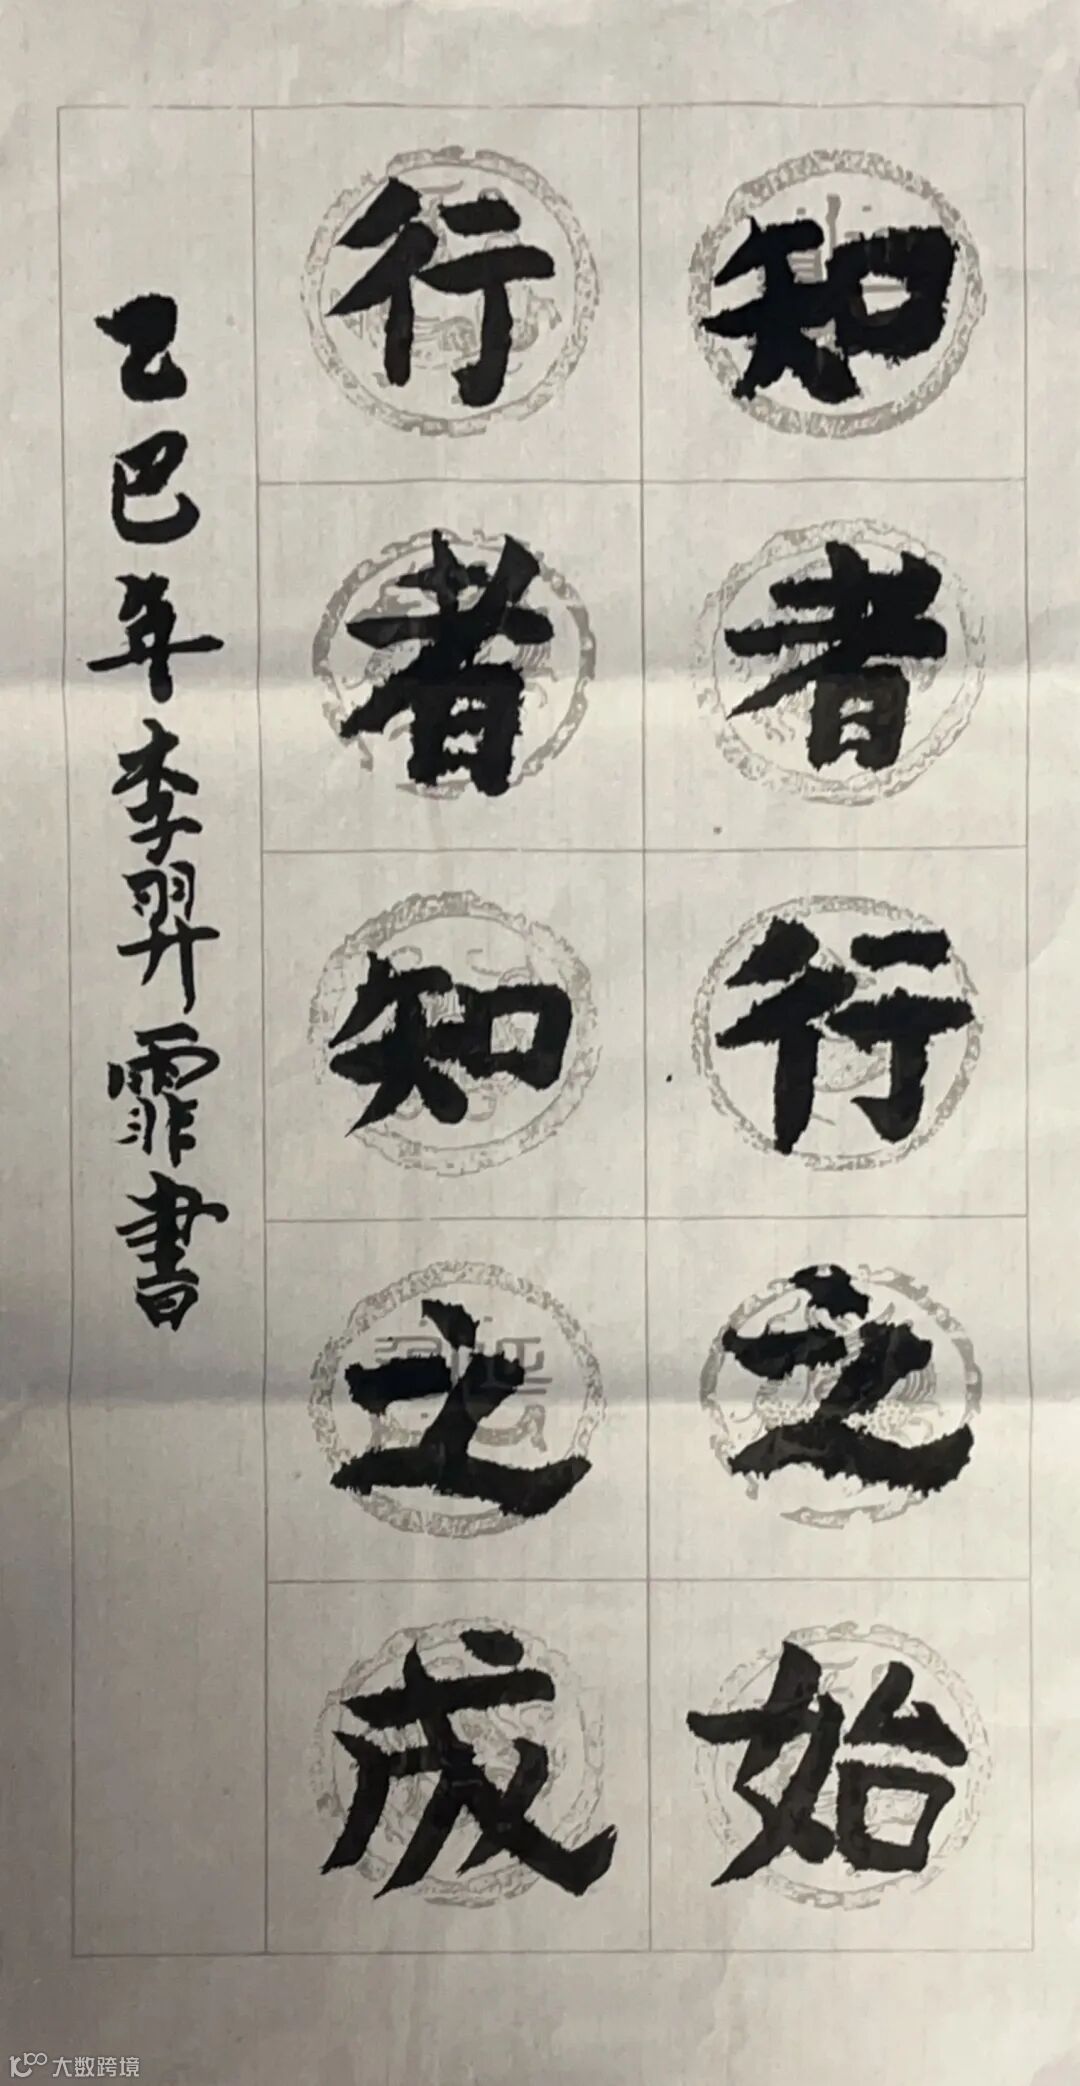 知者行之始
行者知之成
乙巳年李羿霏書
大数跨境